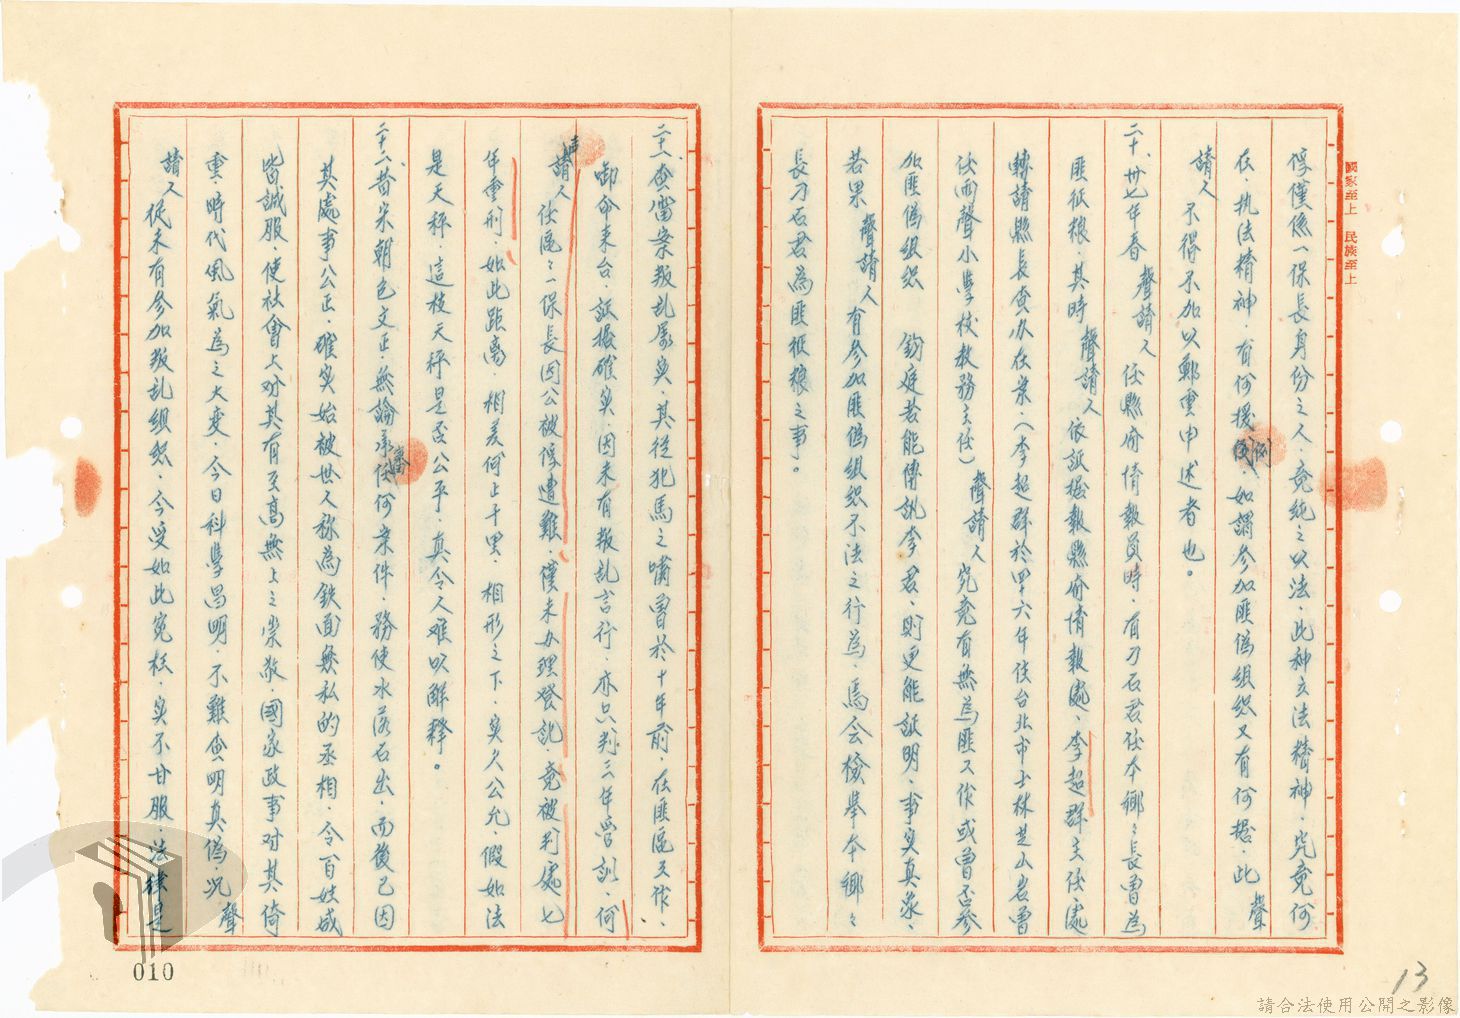 國家至上　民族至上
俘僅係一保長身份之人、竟純之以法、此种立法精神、究竟何
在、执法精神、有何援例、如謂参加匪偽組织又有何据、此聲
請人不得不加以鄭重申述者也。
二十、卅七年春聲請人任縣府情報員時、有刀石君任本鄉々長曾為
匪征粮、其時聲請人依証据報縣府情報處、李超群主任處
轉請縣長查办在案、(李超群於四十六年住台北市士林芝山岩曾
任雨聲小學校教務主任)聲請人究竟有無為匪工作或曾否参
加匪偽組织　鈞庭若能傳訊李君、則更能証明、事实真象、
若果聲請人有参加匪偽組织不法之行為、焉会檢舉本鄉々
長刀石君為匪征粮之事。
二十一、查雷案叛乱屬实、其從犯馬之嘯曾於十年前、在匪區工作、
卸命来台、証据確实、因未有叛乱言行、亦只判三年管訓、何
聲請人任區々一保長因公被俘遭難、僅未办理登記、竟被判處七
年重刑、如此距离、相差何止千里、相形之下、实欠公允、假如法
是天秤、這枝天秤是否公平、真令人难以解释。
二十二、昔宋朝包文正、無論承審任何案件、務使水落石出、而後已因
其處事公正、確实始被世人称為鉄面無私的丞相、令百姓咸
皆誠服、使社會上对其有至高無上之崇敬、國家政事对其倚
重、時代風氣為之大变、今日科學昌明、不難查明真偽、况聲
請人從未有参加叛乱組织、今受如此冤枉、实不甘服、法律是
010
13
請合法使用公開之影像